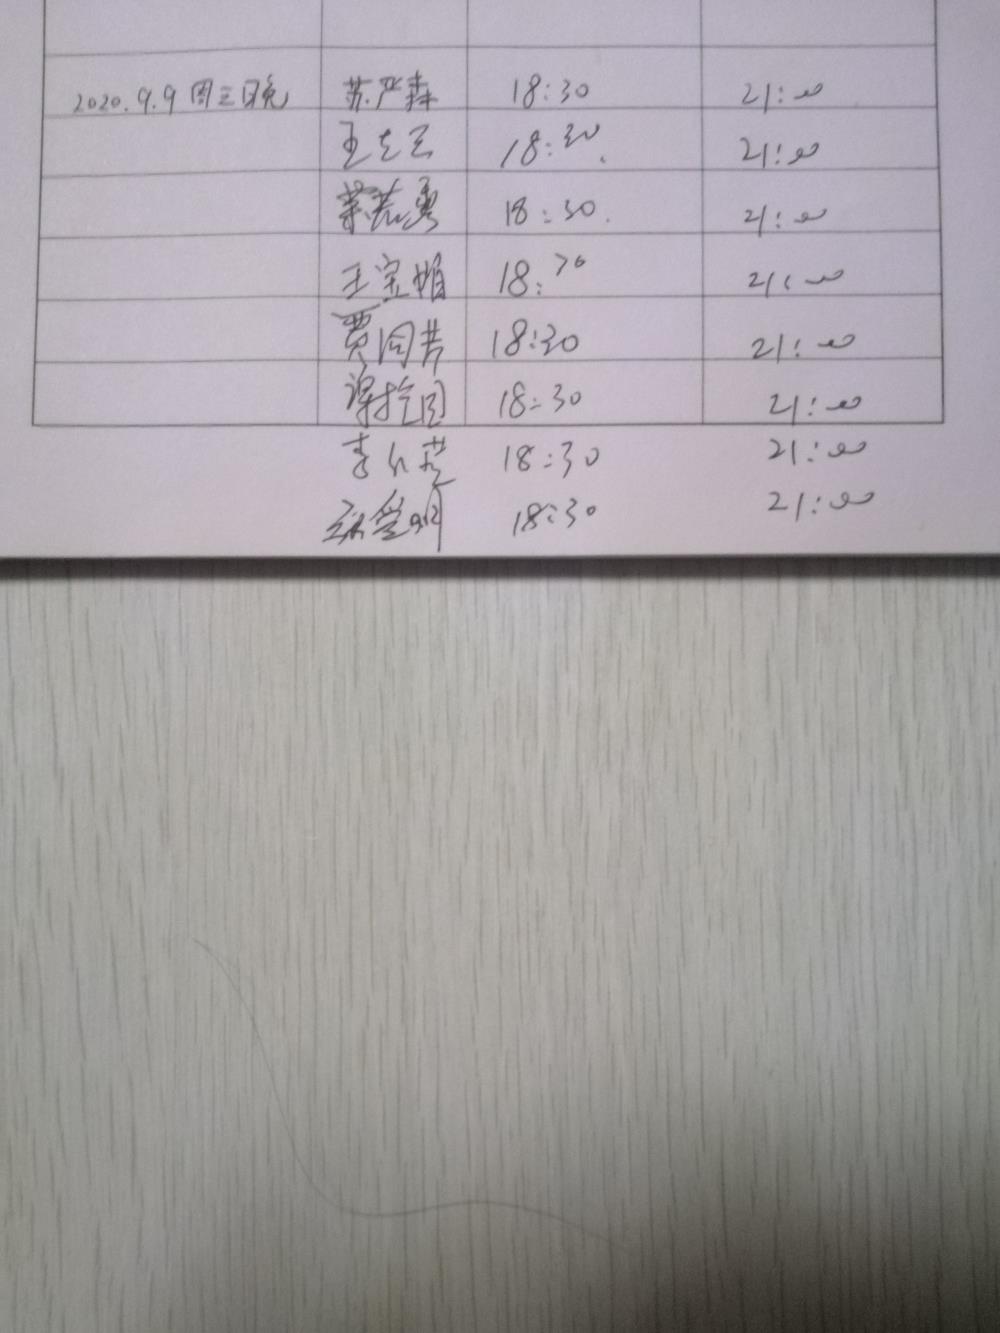 2020.9.9 周三晚 苏严森 18:30 21:00
王 18:30. 21:00
18:30. 21:00
王宝娟 18:30 21:00
贾同芳 18:30 21:00
谢 18:30 21:00
李 18:30 21:00
爱明 18:30 21:00